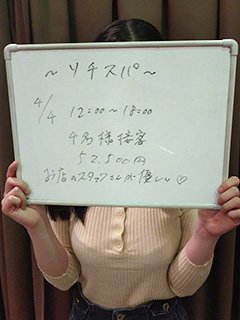 ～リチスパ～
4/4 12:00～18:00
4名様接客
52.500円
お店のスタッフさんが優しい♡